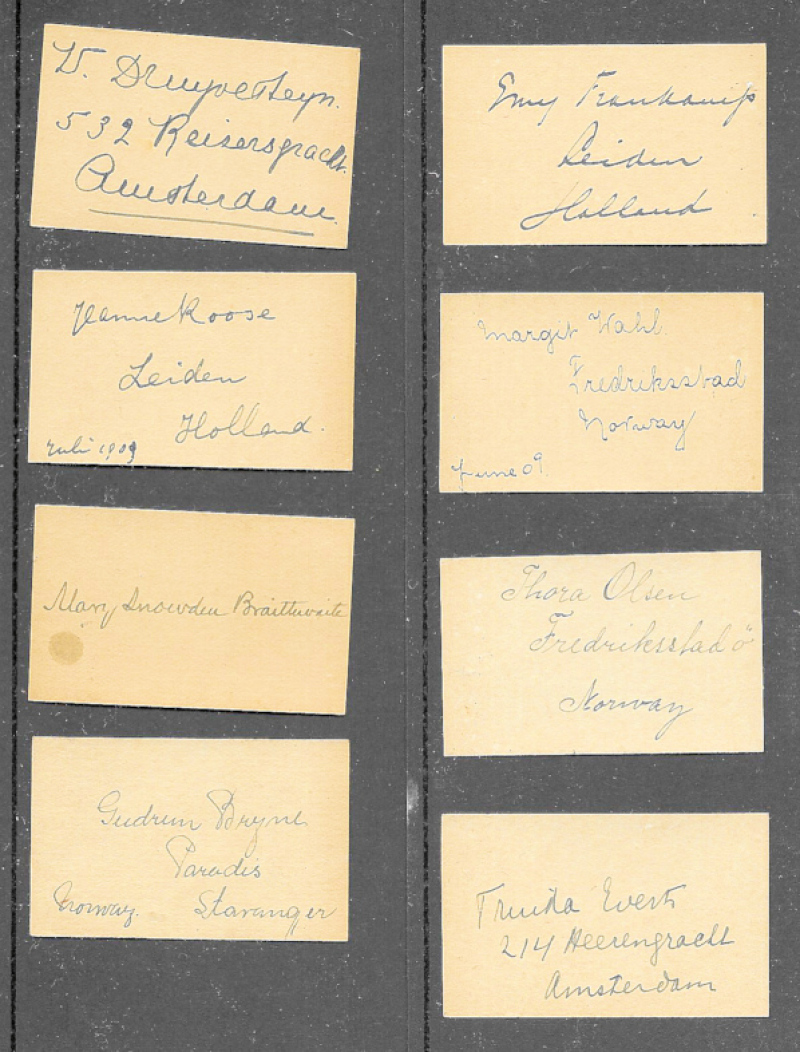 W. Druyvesteyn.
532 Keizersgracht.
Amsterdam.
Jeanne Roose
Leiden
Holland.
Juli 1909
Mary Snowden Braithwaite
Gudrun Bryne
Paradis
Norway. Stavanger
Emy Frankamp
Leiden
Holland
Margit Wahl.
Fredriksstad
Norway
June 09.
Thora Olsen
Fredriksstad ö
Norway
Truida Everts
214 Heerengracht
Amsterdam